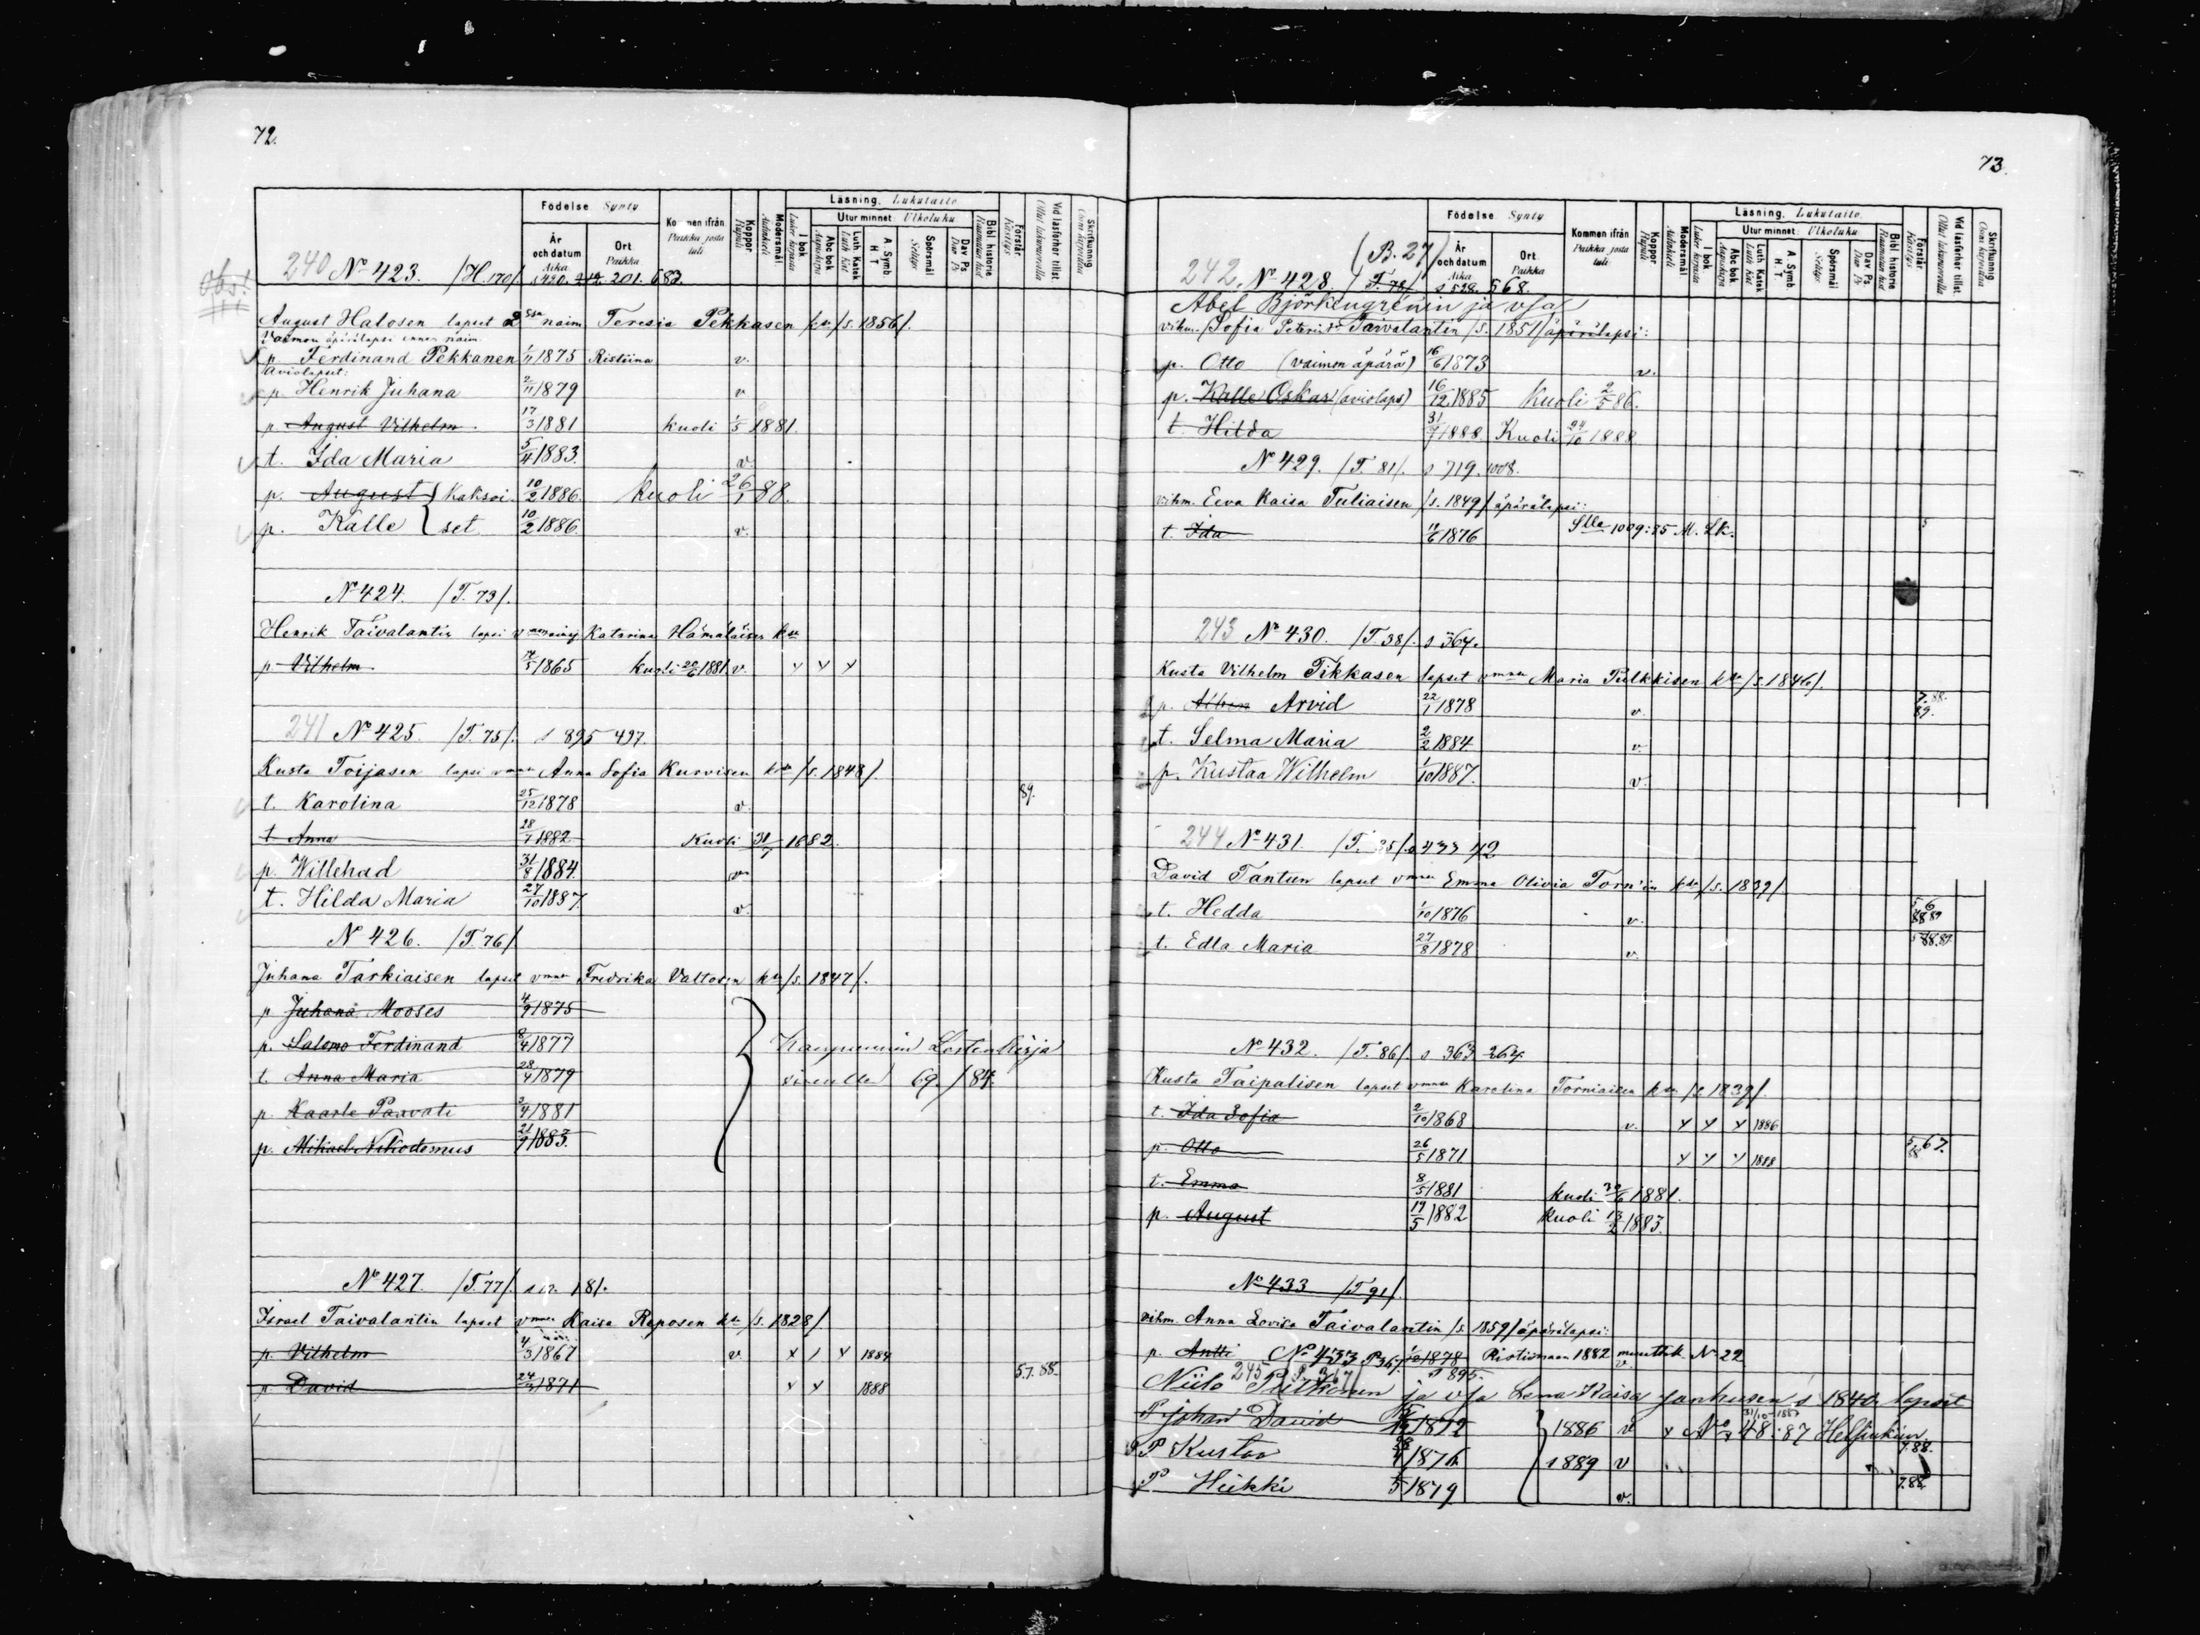 72.
Födelse Synty
Kommen ifrån Paikka josta tuli
Koppor Rupuli
Modersmål Äidinkieli
Läsning. Lukutaito
I bok Luker kirjasta
Utur minnet: Ulkoluku
Abc bok Aapiskirja
Luth. Katek Luth Kat
A. Symb. H T
Spörsmål Selitys
Dav Ps Dav Ps
Bibl historie Raamatun hist
Förstår Käsitys
Vid läsförhör tillst. Ollut lukuvuorolla
Skrifkunnig Osaa kirjoittaa
År och datum Aika
Ort Paikka
Obs!
240 No 423. /H. 170/. 201. 683.
August Halosen lapset 2 naim Teresia Pekkasen kssa /s. 1856/.
Vaimon äpärälapsi ennen naim.
p. Ferdinand Pekkanen 1/11 1875 Ristiina v.
Aviolapset:
p. Henrik Juhana 2/11 1879 v
p. August Vilhelm. 17/3 1881 kuoli 1/5 1881.
t. Ida Maria 5/4 1883. v.
p. August } Kaksoi 10/2 1886. Kuoli 26/1 88.
p. Kalle } set 10/2 1886. v.
No 424. /T. 73/.
Henrik Taivalantin lapsi Katarina Hämäläisen kssa
p. Vilhelm 1865 kuoli 1881. v. x x x
241 No 425. /T. 75/. s 895 497.
Kusta Toijasen lapsi vmon Anna Sofia Kurvisen kssa /s. 1848/
t. Karolina 25/12 1878 v. 89.
t. Anna 28/1 1882 Kuoli 31/7 1882.
p. Willehad 31/8 1884. v
t. Hilda Maria 27/10 1887. v.
No 426. /T. 76/
Juhana Tarkiaisen lapset vmon Fredrika Valtosen kssa /s. 1847/.
p. Juhana Mooses 4/9 1875
p. Salomo Ferdinand 8/4 1877
t. Anna Maria 28/4 1879
p. Kaarle Paavali 2/4 1881
p. Mikael Nikodemus 21/9 1883.
Kaupunnin Lastenkirja
sivulla 69 / 84.
No 427. /T. 77/. 181.
Israel Taivalantin lapset vmon Kaisa Reposen kssa /s. 1828/
p. Vilhelm 4/3 1867 v. x 1 x 1884
p. David 24/3 1871 x x 1888 5.7. 88.
73.
Födelse Synty
Kommen ifrån Paikka josta tuli
Koppor Rupuli
Modersmål Äidinkieli
Läsning. Lukutaito
I bok Luker kirjasta
Utur minnet: Ulkoluku
Abc bok Aapiskirja
Luth. Katek Luth Kat
A. Symb. H T
Spörsmål Selitys
Dav. Ps Dav Ps
Bibl historie Raamatun hist
Förstår Käsitys
Vid läsförhör tillst. Ollut lukuvuorolla
Skrifkunnig Osaa kirjoittaa
År och datum Aika
Ort Paikka
(B. 27)
242 No 428. /T. 78/ s 528. 568.
Abel Björkengrenin ja vsa
vihm. /Sofia Peterint. Taivalantin /s. 1851/ äpärälapsi:
p. Otto (vaimon äpärä) 16/6 1873 v.
p. Kalle Oskar (aviolaps) 16/12 1885 Kuoli 2/5 86.
t. Hilda 31/7 1888 Kuoli 24/10 1888
No 429. /T. 81/. s 719. 1008.
vihm. Eeva Kaisa Tuliaisen /s. 1849/ äpärälapsi:
t. Ida 1876 Slla 1009:85 M. Lk.
243 No 430. /T. 38/. s 364.
Kusta Vilhelm Tikkasen lapset vmon Maria Pulkkisen kssa /s. 1846/.
p. Arvid 22/1 1878 v. 7. 88. 89.
t. Selma Maria 2/2 1884 v
p. Kustaa Wilhelm 1/10 1887. v.
244 No 431. /T. 35/. 42
David Tantun lapset vmon Emma Olivia Torn'in kssa /s. 1839/
t. Hedda 1/10 1876 v. 5 6 88 89
t. Edla Maria 27/8 1878 v. 5 88. 89
No 432. /T. 86/. s 363 264.
Kusta Taipalisen lapset vmon Karolina Torniaisen kssa /s. 1839/.
t. Ida Sofia 2/10 1868 v. x x x 1886
p. Otto 26/5 1871 x x x 1888 5 6 7. 88
t. Emma 8/5 1881 kuoli 30/6 1881.
p. August 19/5 1882 kuoli 13/2 1883.
No 433 /T. 91/.
vihm. Anna Lovisa Taivalantin /s. 1859/ äpärälapsi:
p. Antti 1878 Ristiinaan 1882 muuttok. No 22
No 433 P 367. s 895.
245
Niilo Pulkkonen ja vsa Lena Kaisa Janhusen s 1840. lapset
P. Johan David 1872 1886 v x No 48:87 Helsinkiin. 31/10 1887
P Kustaa 1876 1889 v 7.88.
P Heikki 1879 v. 7.88